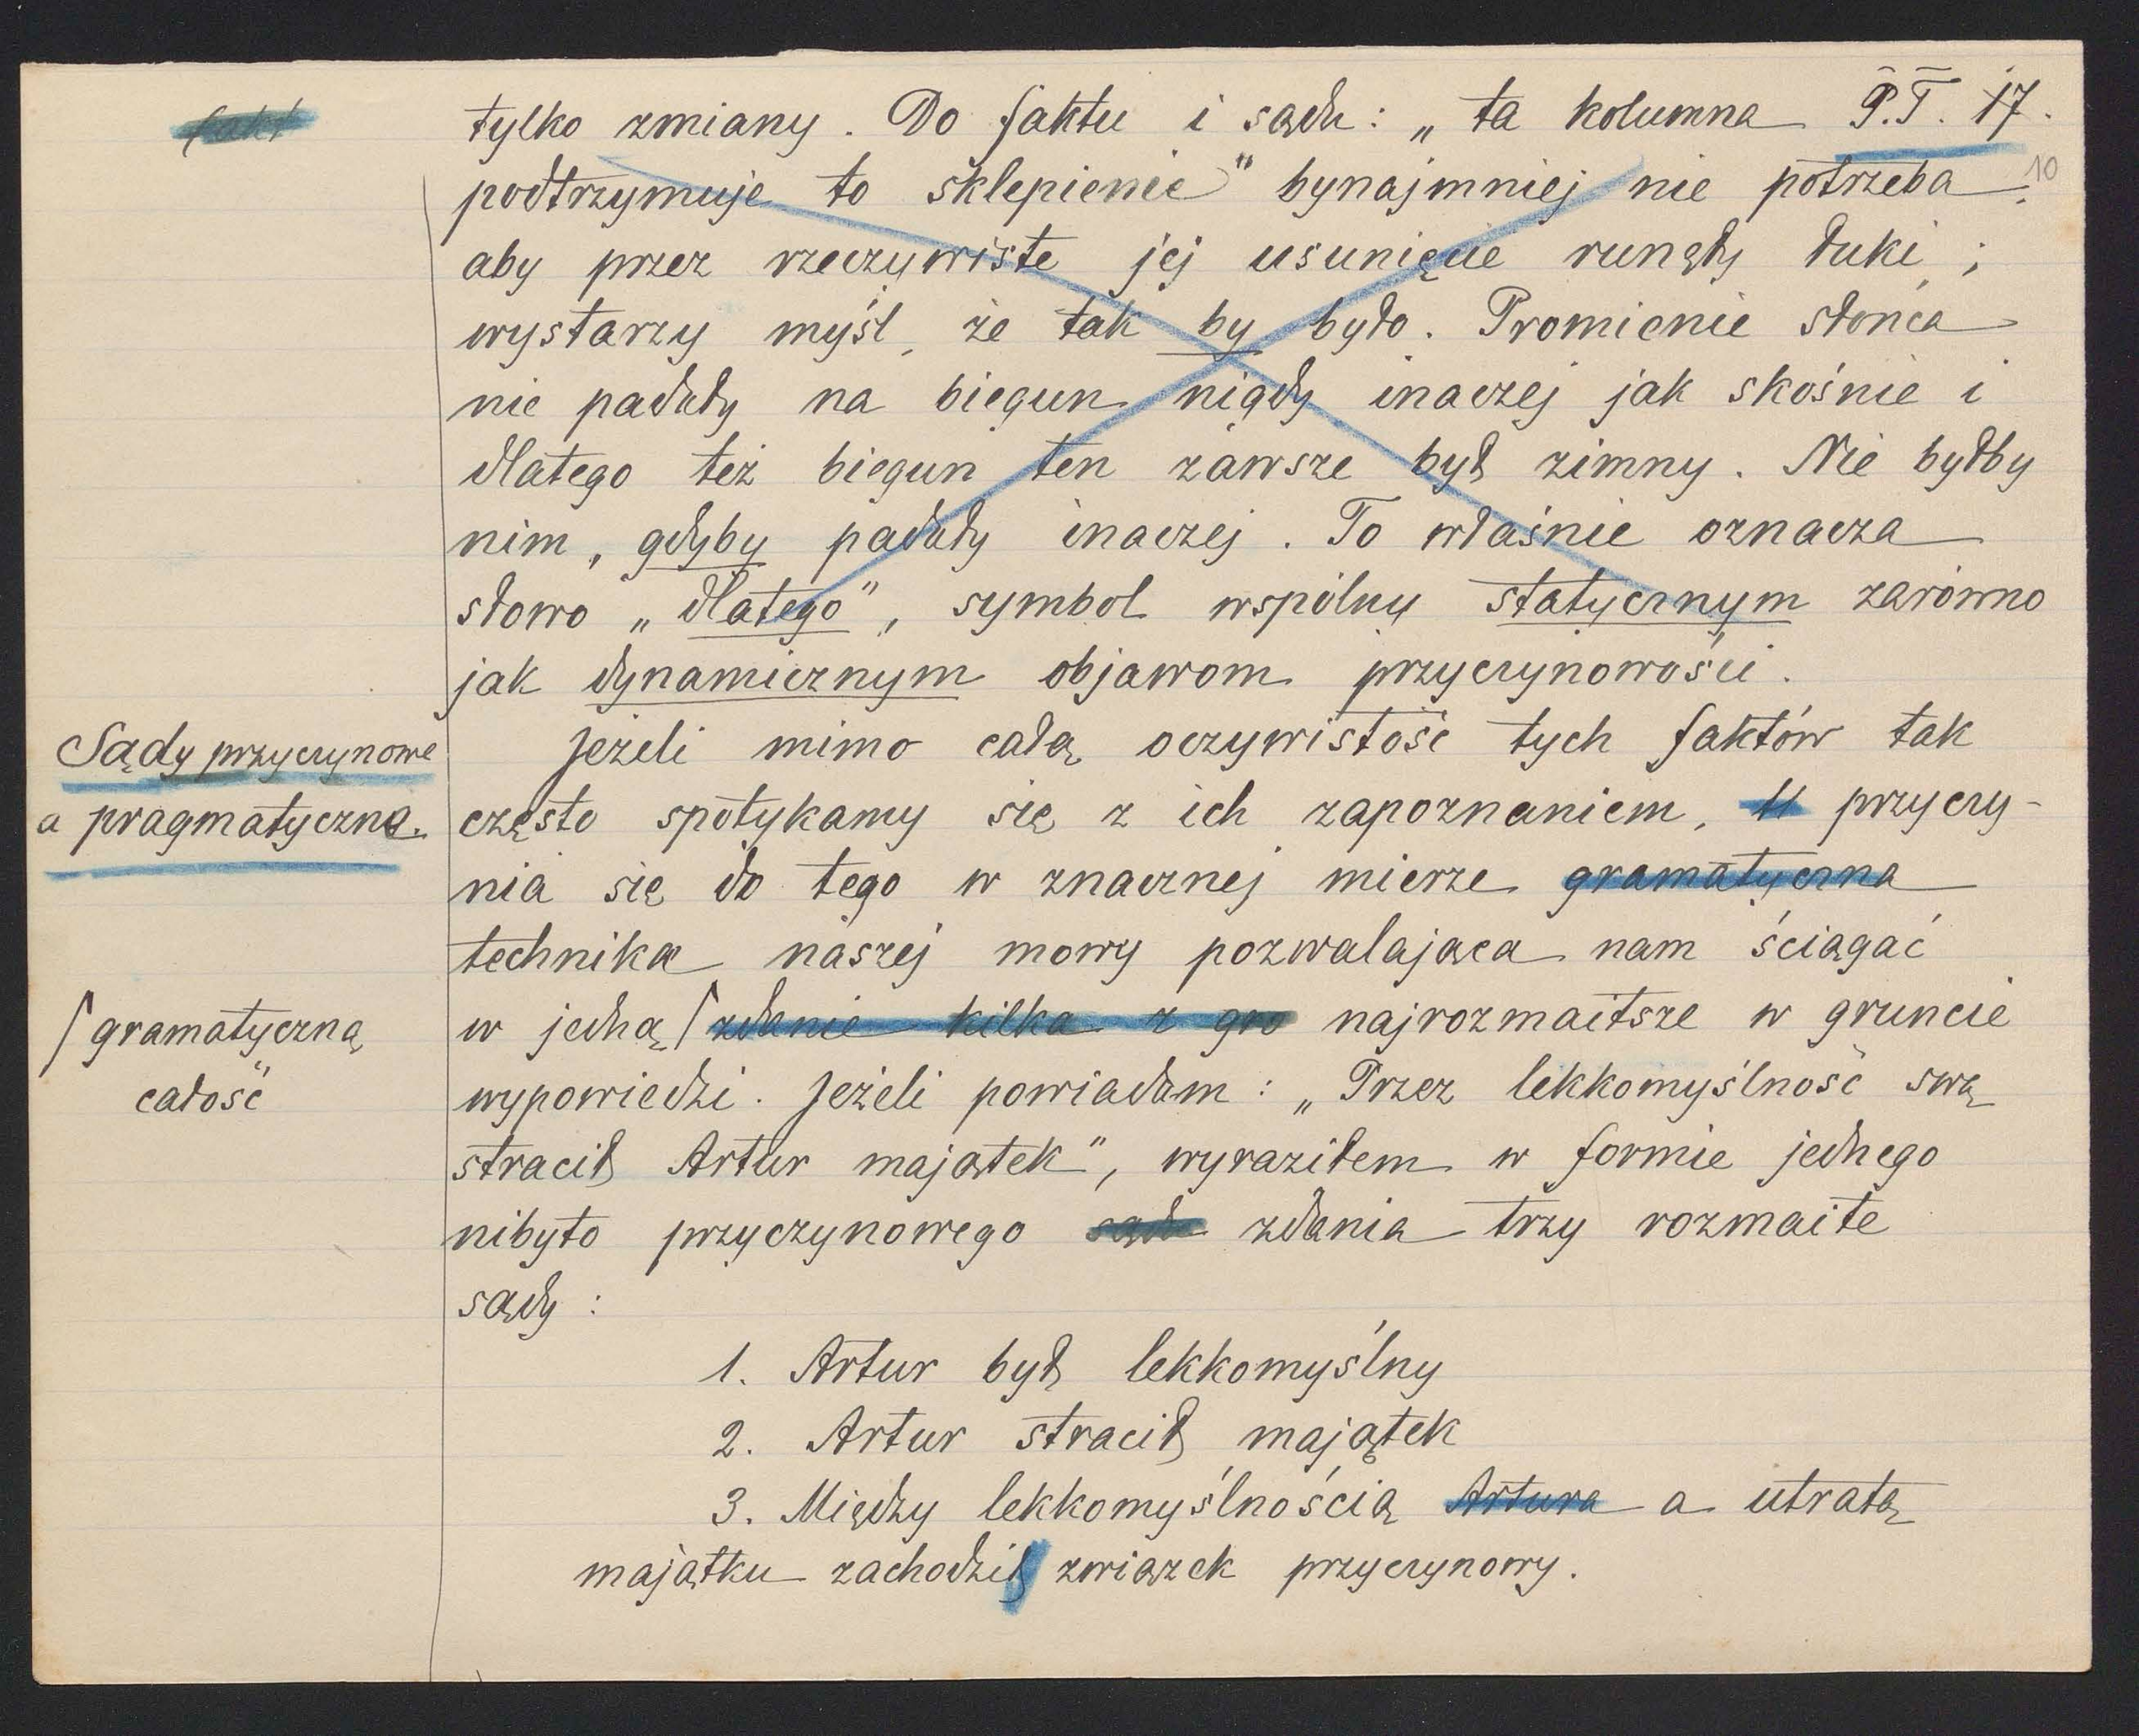 fakt
tylko zmiany. Do faktu i sądu: „ta kolumna P.T. 17.
10
podtrzymuje to sklepienie" bynajmniej nie potrzeba,
aby przez rzeczywiste jej usunięcie runęły łuki;
wystarzy myśl, że tak by było. Promienie słońca
nie padały na biegun nigdy inaczej jak skośnie i
dlatego też biegun ten zawsze był zimny. Nie byłby
nim, gdyby padały inaczej. To właśnie oznacza
słowo „dlatego", symbol wspólny statycznym zarówno
jak dynamicznym objawom przyczynowości.
Sądy przyczynowe
a pragmatyczne.
Jeżeli mimo całą oczywistość tych faktów tak
często spotykamy się z ich zapoznaniem, przyczy-
nia się do tego w znacznej mierze gramatyczna
technika naszej mowy pozwalająca nam ściągać
w jedną ⌠ zdanie kilka z gro najrozmaitsze w gruncie
⌠ gramatyczną
całość
wypowiedzi. Jeżeli powiadam: „Przez lekkomyślność swą
stracił Artur majątek", wyraziłem w formie jednego
nibyto przyczynowego sądu zdania trzy rozmaite
sądy:
1. Artur był lekkomyślny
2. Artur stracił majątek
3. Między lekkomyślnością Artura a utratą
majątku zachodził związek przyczynowy.